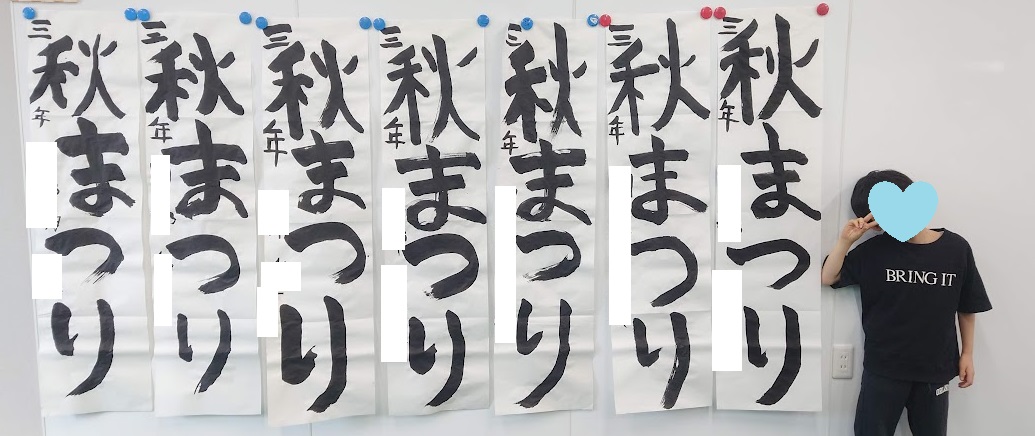 三年
秋まつり
三年
秋まつり
三年
秋まつり
三年
秋まつり
三年
秋まつり
三年
秋まつり
三年
秋まつり
BRING IT